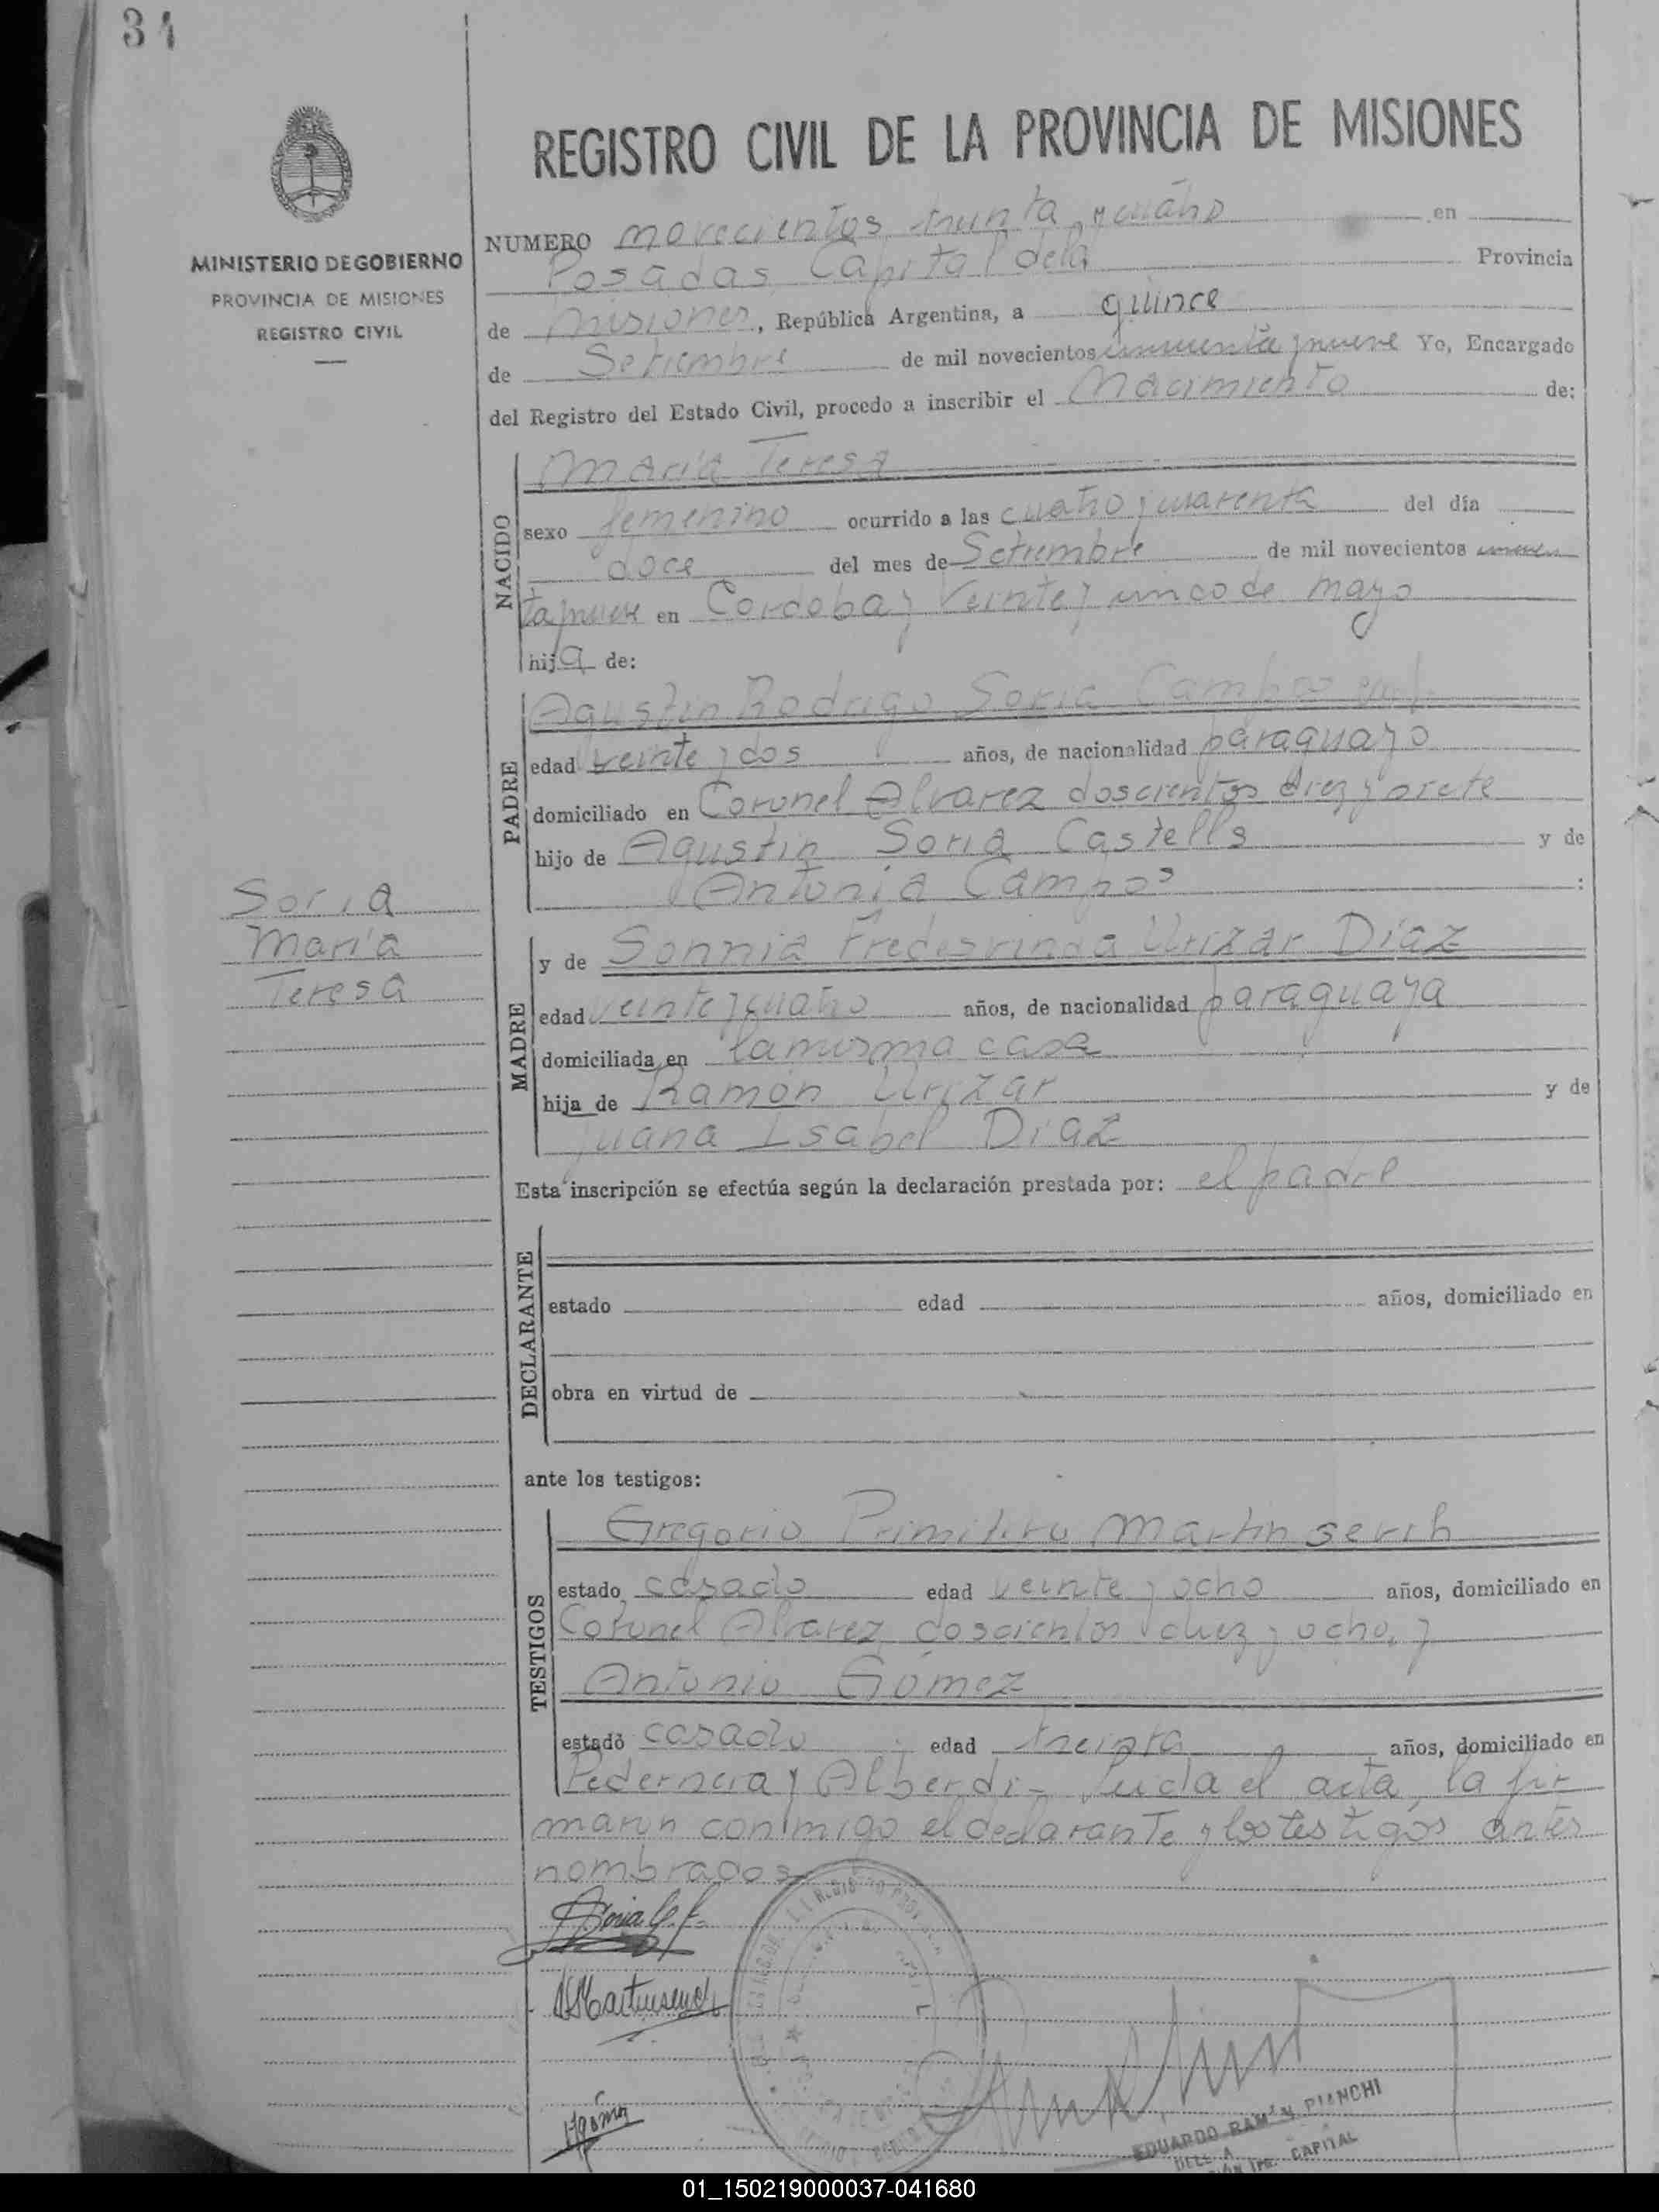 34
MINISTERIO DE GOBIERNO
PROVINCIA DE MISIONES
REGISTRO CIVIL
REGISTRO CIVIL DE LA PROVINCIA DE MISIONES
NUMERO novecientos treinta y cuatro en
Posadas Capital dela Provincia
de Misiones, República Argentina, a quince
de Setiembre de mil novecientos cincuenta y nueve Yo, Encargado
del Registro del Estado Civil, procedo a inscribir el Nacimiento de:
NACIDO
María Teresa
sexo femenino ocurrido a las cuatro y cuarenta del día
doce del mes de Setiembre de mil novecientos cincuen
ta y nueve en Cordoba y Veinte y cinco de mayo
hija de:
PADRE
Agustín Rodrigo Soria Campos
edad veinte y dos años, de nacionalidad paraguayo
domiciliado en Coronel Alvarez doscientos diez y siete
hijo de Agustín Soria Castells y de
Antonia Campos :
Soria
María
Teresa
MADRE
y de Sonnia Fredesvinda Urizar Díaz
edad veinte y cuatro años, de nacionalidad paraguaya
domiciliada en la misma casa
hija de Ramón Urizar y de
Juana Isabel Díaz
Esta inscripción se efectúa según la declaración prestada por: el padre
DECLARANTE
estado edad años, domiciliado en
obra en virtud de
ante los testigos:
TESTIGOS
Gregorio Primitivo Martinserch
estado casado edad veinte y ocho años, domiciliado en
Coronel Alvarez doscientos diez y ocho, y
Antonio Gómez
estado casado edad treinta años, domiciliado en
Pedernera y Alberdi - Leída el acta, la fir
maron conmigo el declarante y los testigos antes
nombrados
EDUARDO RAMON PIANCHI
CAPITAL
01_150219000037-041680